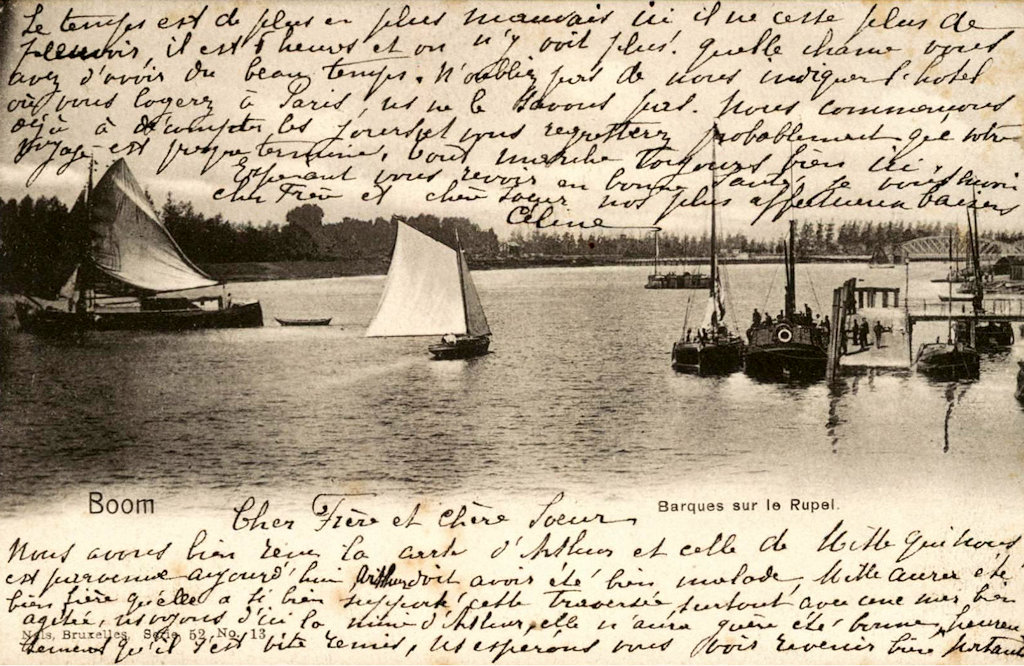 Le temps est de plus en plus mauvais ici il ne cesse plus de
pleuvoir, il est 5 heures et on n'y voit plus. quelle chance vous
avez d'avoir du beau temps. N'oubliez pas de nous indiquer l'hotel
où vous logerez à Paris, ns ne le savons pas. Nous commençons
déjà à décompter les jours et vous regretterez probablement que votre
voyage est presque terminé. tout marche toujours bien ici.
Espérant vous revoir en bonne santé, je vous
cher Frère et chère soeur nos plus affectueux baisers
Céline
Boom
Barques sur le Rupel.
Cher Frère et chère Soeur
Nous avons bien reçu la carte d'Arthur et celle de Mille qui nous
est parvenue aujourd'hui Arthur doit avoir été bien malade, Mille aura été
bien fière qu'elle a si bien supporté cette traversée surtout avec une mer bien
agitée, ns voyons d'ici la mine d'Arthur, elle n'aura guère été bonne, heureu
Nels, Bruxelles, Serie 52 No. 13
sement qu'il s'est vite remis, ns espérons vous voir revenir bien portant